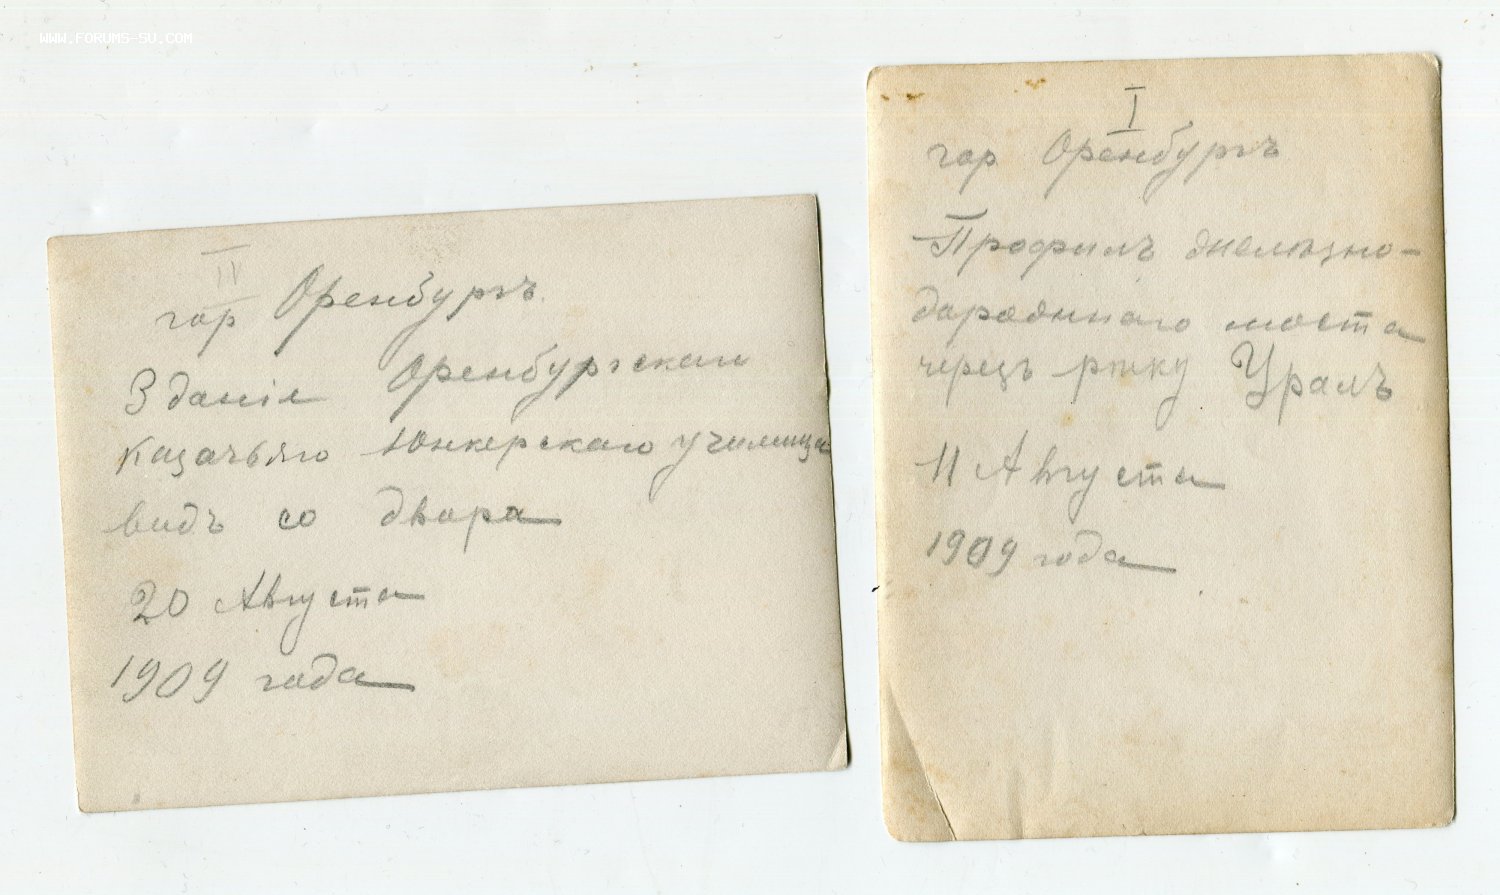 WWW.FORUMS-SU.COM
IV
гор Оренбургъ
Зданіе Оренбургскаго
Казачьяго Юнкерскаго училища
видъ со двора
20 Августа
1909 года
I
гор Оренбургъ
Профиль желѣзно-
дорожнаго моста
черезъ рѣку Уралъ
11 Августа
1909 года